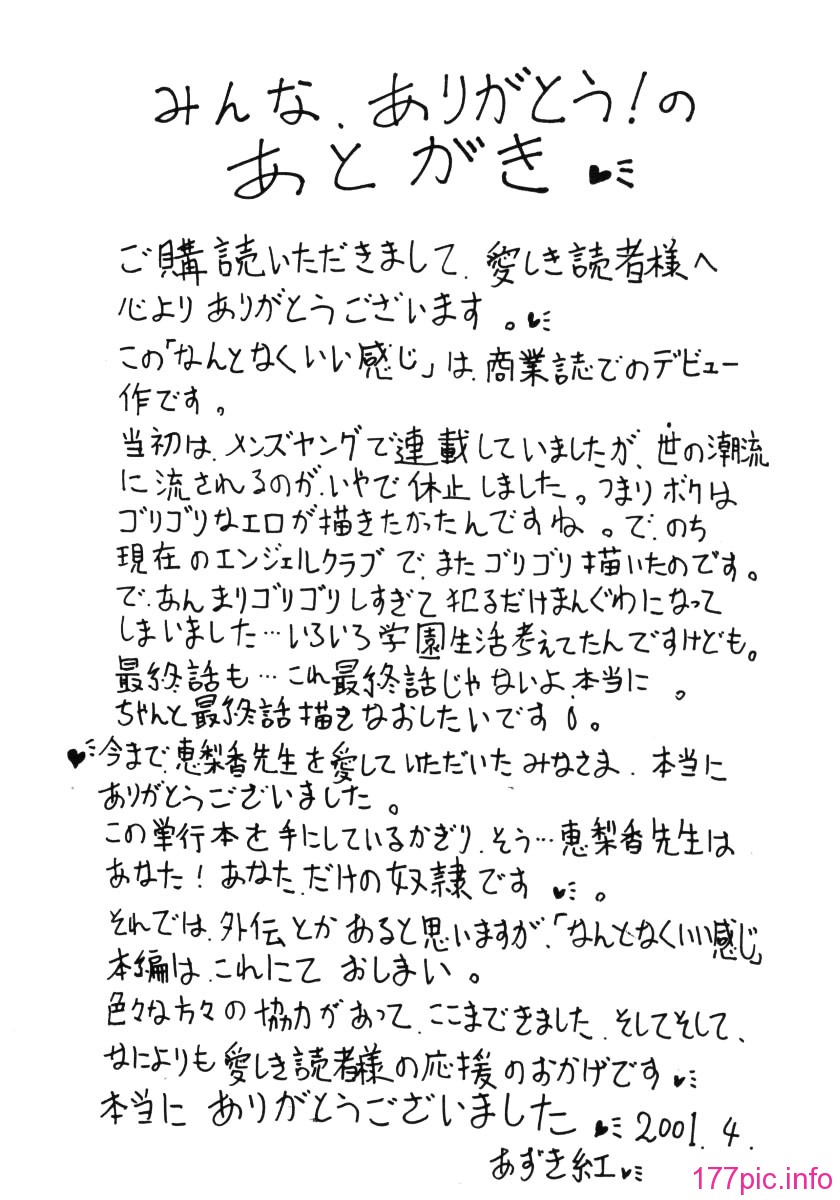 みんな、ありがとう!の
あとがき♥
ご購読いただきまして、愛しき読者様へ
心よりありがとうございます。♥
この「なんとなくいい感じ」は、商業誌でのデビュー
作です。
当初は、メンズヤングで連載していましたが、世の潮流
に流されるのが、いやで休止しました。つまりボクは
ゴリゴリなエロが描きたかったんですね。で、のち
現在のエンジェルクラブで、またゴリゴリ描いたのです。
で、あんまりゴリゴリしすぎて犯るだけまんぐわになって
しまいました…いろいろ学園生活考えてたんですけども。
最終話も…これ最終話じゃないよ、本当に。
ちゃんと最終話描きなおしたいです。
♥今まで、恵梨香先生を愛していただいたみなさま、本当に
ありがとうございました。
この単行本を手にしているかぎり、そう…恵梨香先生は
あなた!あなた、だけの奴隷です♥。
それでは、外伝とかあると思いますが、「なんとなくいい感じ」
本編は、これにておしまい。
色々な方々の協力があって、ここまできました、そしてそして、
なによりも愛しき読者様の応援のおかげです♥
本当にありがとうございました♥2001.4.
あずき紅♥
177pic.info